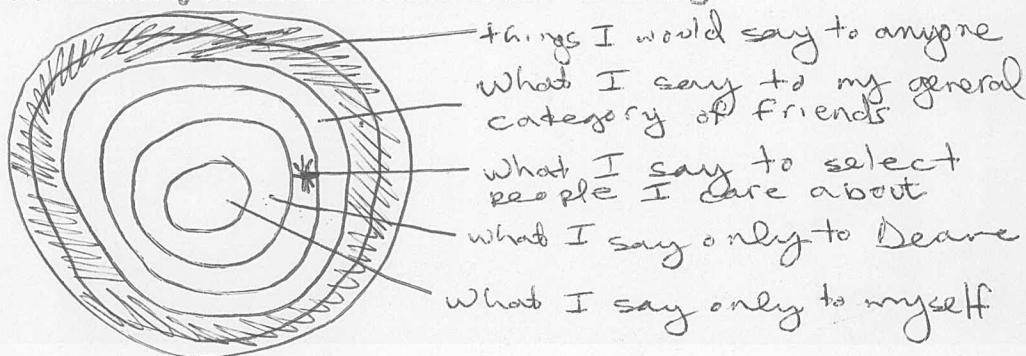 things I would say to anyone
what I say to my general
category of friends
what I say to select
people I care about
what I say only to Deane
what I say only to myself